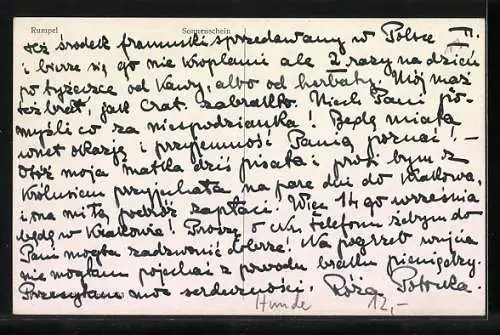 Rumpel Sonnenschein
też środek francuski sprzedawany w Polsce II.
i bierze się go nie kroplami ale 2 razy na dzień
po łyżeczce od kawy, albo od herbaty. Mój mąż
też brał, jak Crat. zabrakło. Niech Pani po-
myśli co za niespodzianka! Będę miała
wnet okazję i przyjemność Panią poznać! -
Otóż moja matka dziś pisała i prosi bym z
Królusiem przyjechała na parę dni do Krakowa,
i ona mi tę podróż zapłaci. Więc 14go września
będę w Krakowie! Proszę o telefonu żebym do
Pani mogła zadzwonić dobrze! Na pogrzeb wujka
nie mogłam pojechać z powodu braku pieniędzy.
Przesyłam moc serdeczności. Róża Potocka.
Hunde 12,-